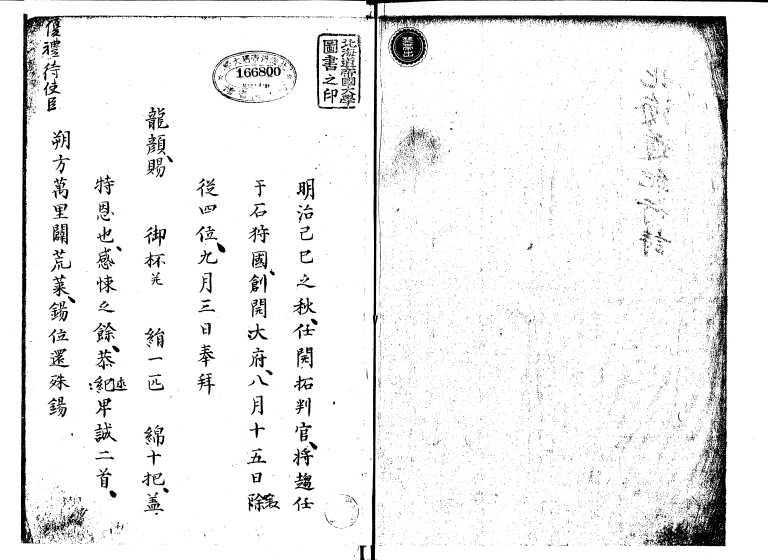 北海道帝國大學
圖書之印
166800
明治己巳之秋、任開拓判官、將趨任
于石狩國、創開大府、八月十五日除
從四位、九月三日奉拜
龍顏、賜 御杯并 絹一匹 綿十把、蓋
特恩也、感悚之餘、恭紀卑誠二首、
朔方萬里闢荒萊、錫位還殊錫
優禮待使臣
北海道紀行詩